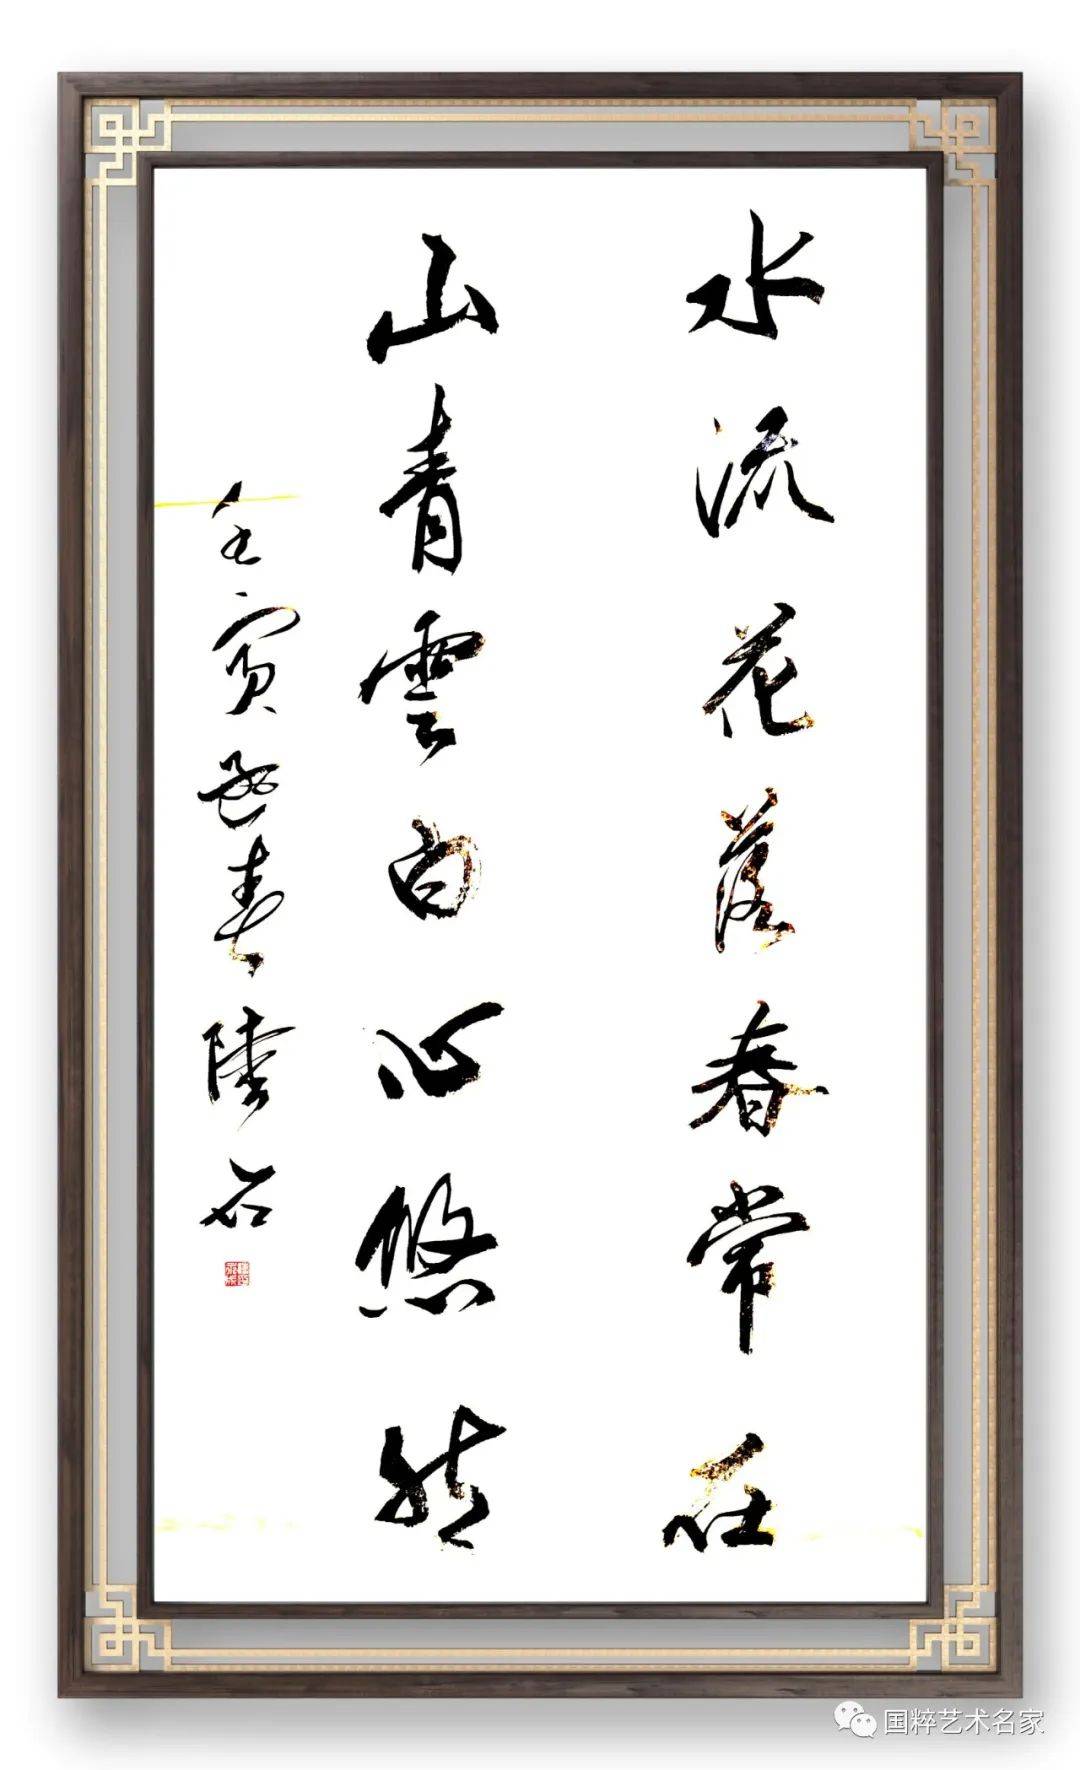 水流花落春常在
山青雲白心悠然
壬寅孟春陸石
国粹艺术名家